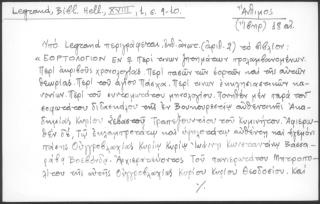 Legrand, Bibl. Hell., XVIII, 1, σ. 9-10.
Ἄνθιμος
(Ἰβηρ) 18 αἰ.
Ὑπὸ Legrand περιγράφεται, (ἀριθ. 2) τὸ βιβλίον:
« ΕΟΡΤΟΛΟΓΙΟΝ ΕΝ ᾧ Περί τινων ζητημάτων προλαμβανομένων.
Περὶ ἀκριβοῦς χρονολογίας. Περὶ πασῶν τῶν ἑορτῶν καὶ τῆς αὐτῶν
θεωρίας. Περὶ τοῦ ἁγίου Πάσχα. Περί τινων ἐκκλησιαστικῶν κα-
νονίων. Περὶ τοῦ ἐνιαυσιαίου μηνολογίου. Ποιηθὲν μὲν παρὰ τοῦ
σοφωτάτου διδασκάλου τῆς ἐν Βουκουρεστίῳ αὐθεντικῆς Ἀκα-
δημίας Κυρίου Σεβαστοῦ Τραπεζουντίου τοῦ Κυμινήτου. Ἀφιερω-
θὲν δὲ, Τῷ ἐκλαμπροτάτῳ καὶ ὑψηλοτάτῳ αὐθέντῃ καὶ ἡγεμόνι
πάσης Οὐγγροβλαχίας Κυρίῳ Κυρίῳ Ἰωάννῃ Κωνσταντίνῳ Βασσα-
ράβᾳ Βοεβόνδᾳ. Ἀρχιερατεύοντος Τοῦ πανιερωτάτου Μητροπο-
λίτου τῆς αὐτῆς Οὐγγροβλαχίας Κυρίου Κυρίου Θεοδοσίου. Καὶ
·/.